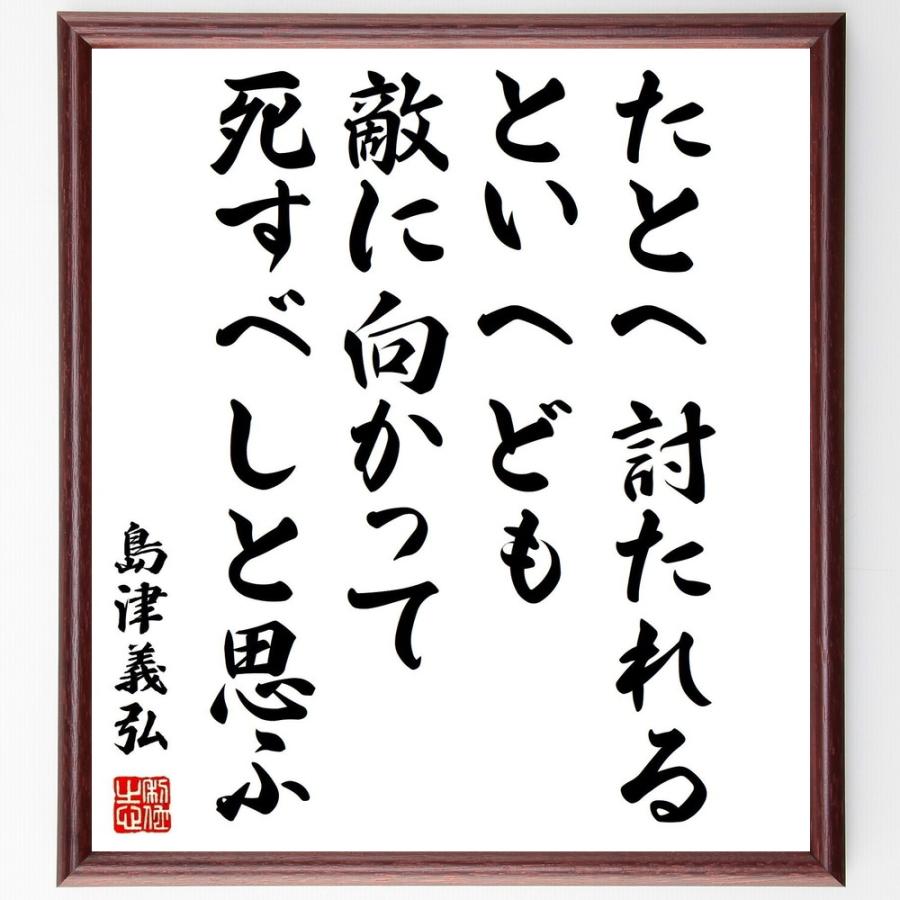 たとへ討たれる
といへども
敵に向かって
死すべしと思ふ
島津義弘